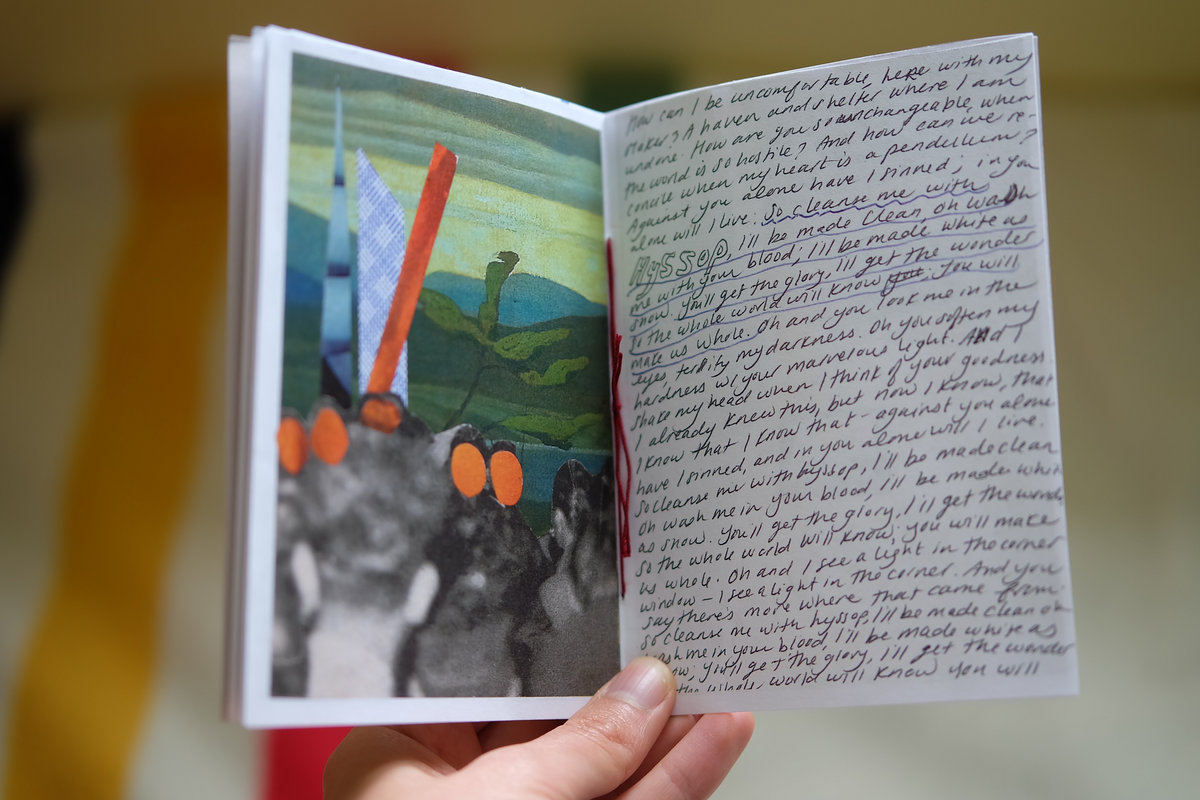 How can I be uncomfortable, here with my
Maker? A haven and shelter where I am
undone. How are you so unchangeable, when
the world is so hostile? And how can we re-
concile when my heart is a pendullum?
Against you alone have I sinned; in you
alone will I live. So cleanse me with
Hyssop, I'll be made clean, oh wash
me with your blood; I'll be made white as
snow. You'll get the glory, I'll get the wonder
so the whole world will know you. You will
make us whole. Oh and you look me in the
eyes, terrify my darkness. Oh you soften my
hardness w/ your marvelous light. And I
shake my head when I think of your goodness
I already knew this, but now I know, that
I know that I know that - against you alone
have I sinned, and in you alone will I live.
So cleanse me with hyssop, I'll be made clean
Oh wash me in your blood, I'll be made white
as snow. You'll get the glory, I'll get the wonder
so the whole world will know; you will make
us whole. Oh and I see a light in the corner
window - I see a light in the corner. And you
say there's more where that came from.
So cleanse me with hyssop, I'll be made clean oh
wash me in your blood, I'll be made white as
snow; You'll get the glory, I'll get the wonder
the whole world will know you will